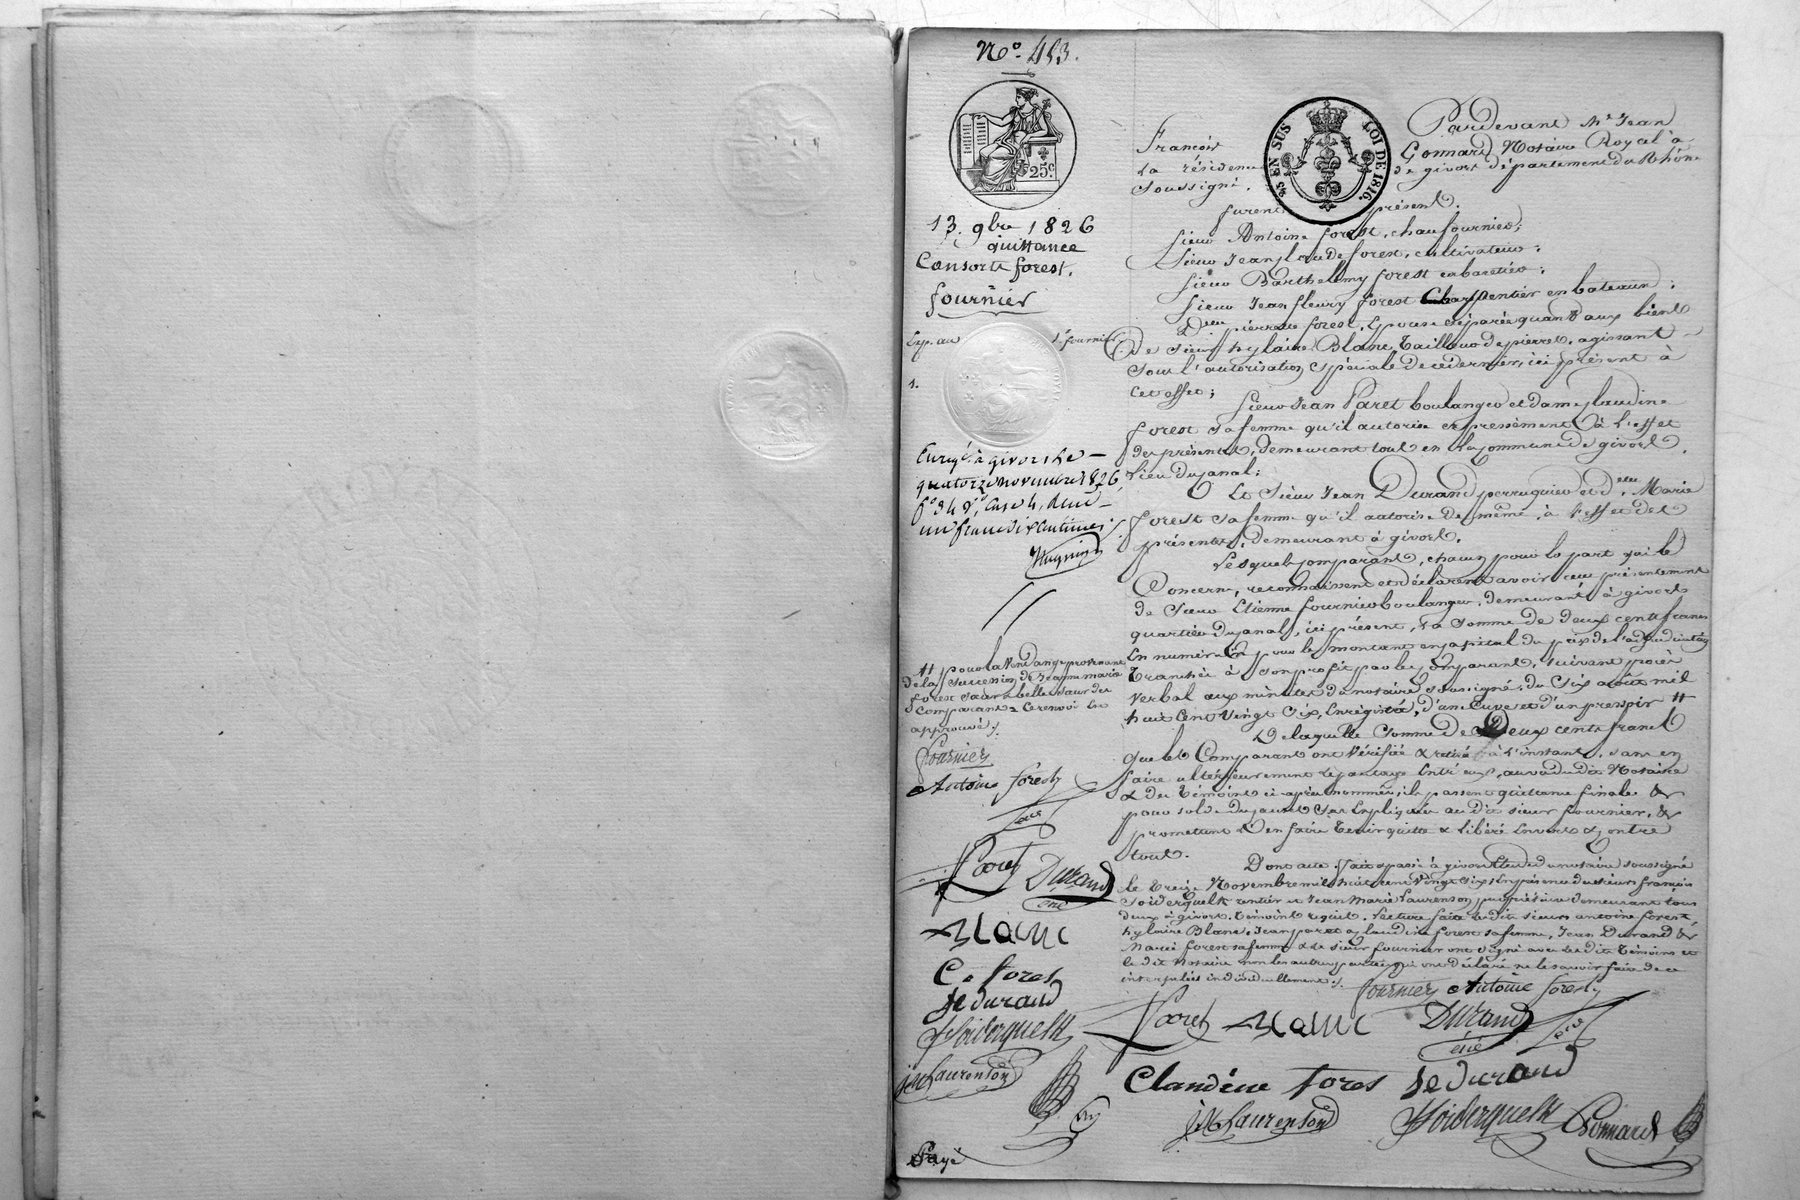 N.° 453.
25c.
25 EN SUS
LOI DE 1816.
13. 9bre 1826
quittance
Consorts forest.
fournier
Exp. au Sr. fournier
1.
Enregé. à givors le
quatorze novembre 1826
f° 34 v°, Case 4, Reçu
un franc dix centimes ;
// pour la vendange provenant
de la succession de Jeanne marie
forest sœur & belle sœur des
Comparants. Ce renvoi est
approuvé ;.
fournier
Antoine forest
Paret Durand
Blanc
C. fores
je durand
Soiderquelk
JM Laurenson
Payé
Pardevant Me. Jean
François Gonnard Notaire Royal à
La résidence de givors département du Rhône
Soussigné.
furent présents.
Sieur Antoine forest, chaufournier ;
Sieur Jean Claude forest, cultivateur ;
Sieur Barthelemy forest cabaretier ;
Sieur Jean fleury forest Charpentier en bateaux ;
Dme pierrette forest, Epouse séparée quant aux biens
De Sieur hylaire Blanc Tailleur de pierres, agissant
Sous l'autorisation spéciale de ce dernier, ici présent à
Cet effet ;
Sieur Jean Paret boulanger et dame Claudine
forest sa femme qu'il autorise expressément à l'effet
des présentes, demeurant tous en la commune de givors,
Lieu du Canal ;
Et Sieur Jean Durand perruquier et dme. Marie
forest sa femme qu'il autorise de même, à l'effet des
présentes, demeurant à givors.
Lesquels comparants, chacun pour la part qui le
Concerne, reconnaissent et déclarent avoir reçu présentement
de Sieur Etienne fournier boulanger, demeurant à givors
quartier du Canal, ici présent, la somme de deux cents francs
En numéraire pour le montant en capital du prix de l'adjudication
Tranchée à son profit par les Comparants, suivant procès
Verbal aux minutes du notaire soussigné, du six août mil
huit Cent Vingt Six, Enregistré, d'une Cuve et d'un pressoir //
De laquelle Somme de Deux cents francs
que les Comparants ont Vérifiée & retirée à l'instant, sauf en
faire ultérieurement le partage Entr'eux, au vu dudit Notaire
& des Témoins ci-après nommés, ils passent quittance finale &
pour solde du Capital sus Expliqué au dit sieur fournier, &
promettent l'en faire Tenir quitte & libéré Envers & contre
tous.
Dont acte. fait & passé à givors Etude du notaire soussigné
le treize Novembre mil huit cent Vingt Six, En présence des sieurs françois
Soiderquelk rentier et Jean Marie Laurenson, propriétaire demeurant tous
deux à givors, témoins requis. Lecture faite lesdits sieurs antoine forest,
hylaire Blanc, Jean paret & Claudine forest sa femme, Jean Durand &
Marie forest sa femme & le sieur fournier ont signé avec lesdits Témoins et
le dit Notaire non les autres parties qui ont déclaré ne le savoir faire de ce
interpellés individuellement ;.
fournier Antoine forest
Paret Blanc Durand
Claudine fores je durand
JM Laurenson Soiderquelk Gonnard